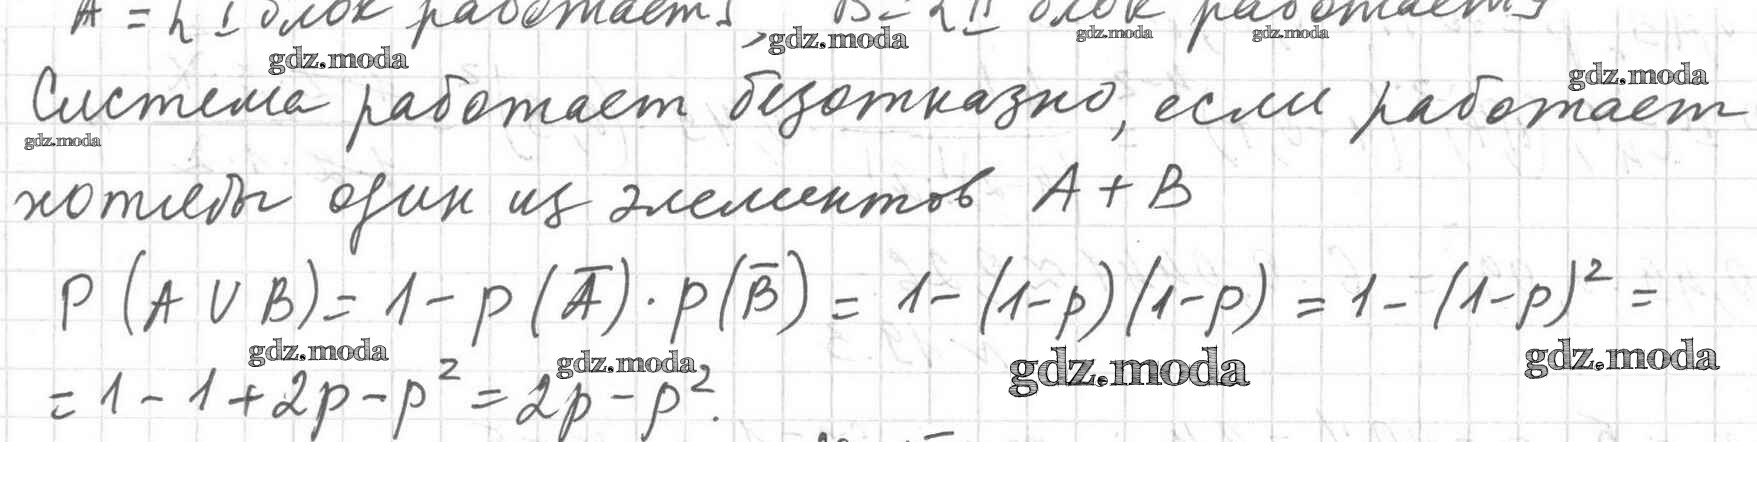 A = { I блок работает}, B = { II блок работает}
Система работает безотказно, если работает
хотябы один из элементов A + B
P (A U B) = 1 - p (A̅) · p (B̅) = 1 - (1-p) (1-p) = 1 - (1-p)² =
= 1 - 1 + 2p - p² = 2p - p².
gdz.moda
gdz.moda
gdz.moda
gdz.moda
gdz.moda
gdz.moda
gdz.moda
gdz.moda
gdz.moda
gdz.moda